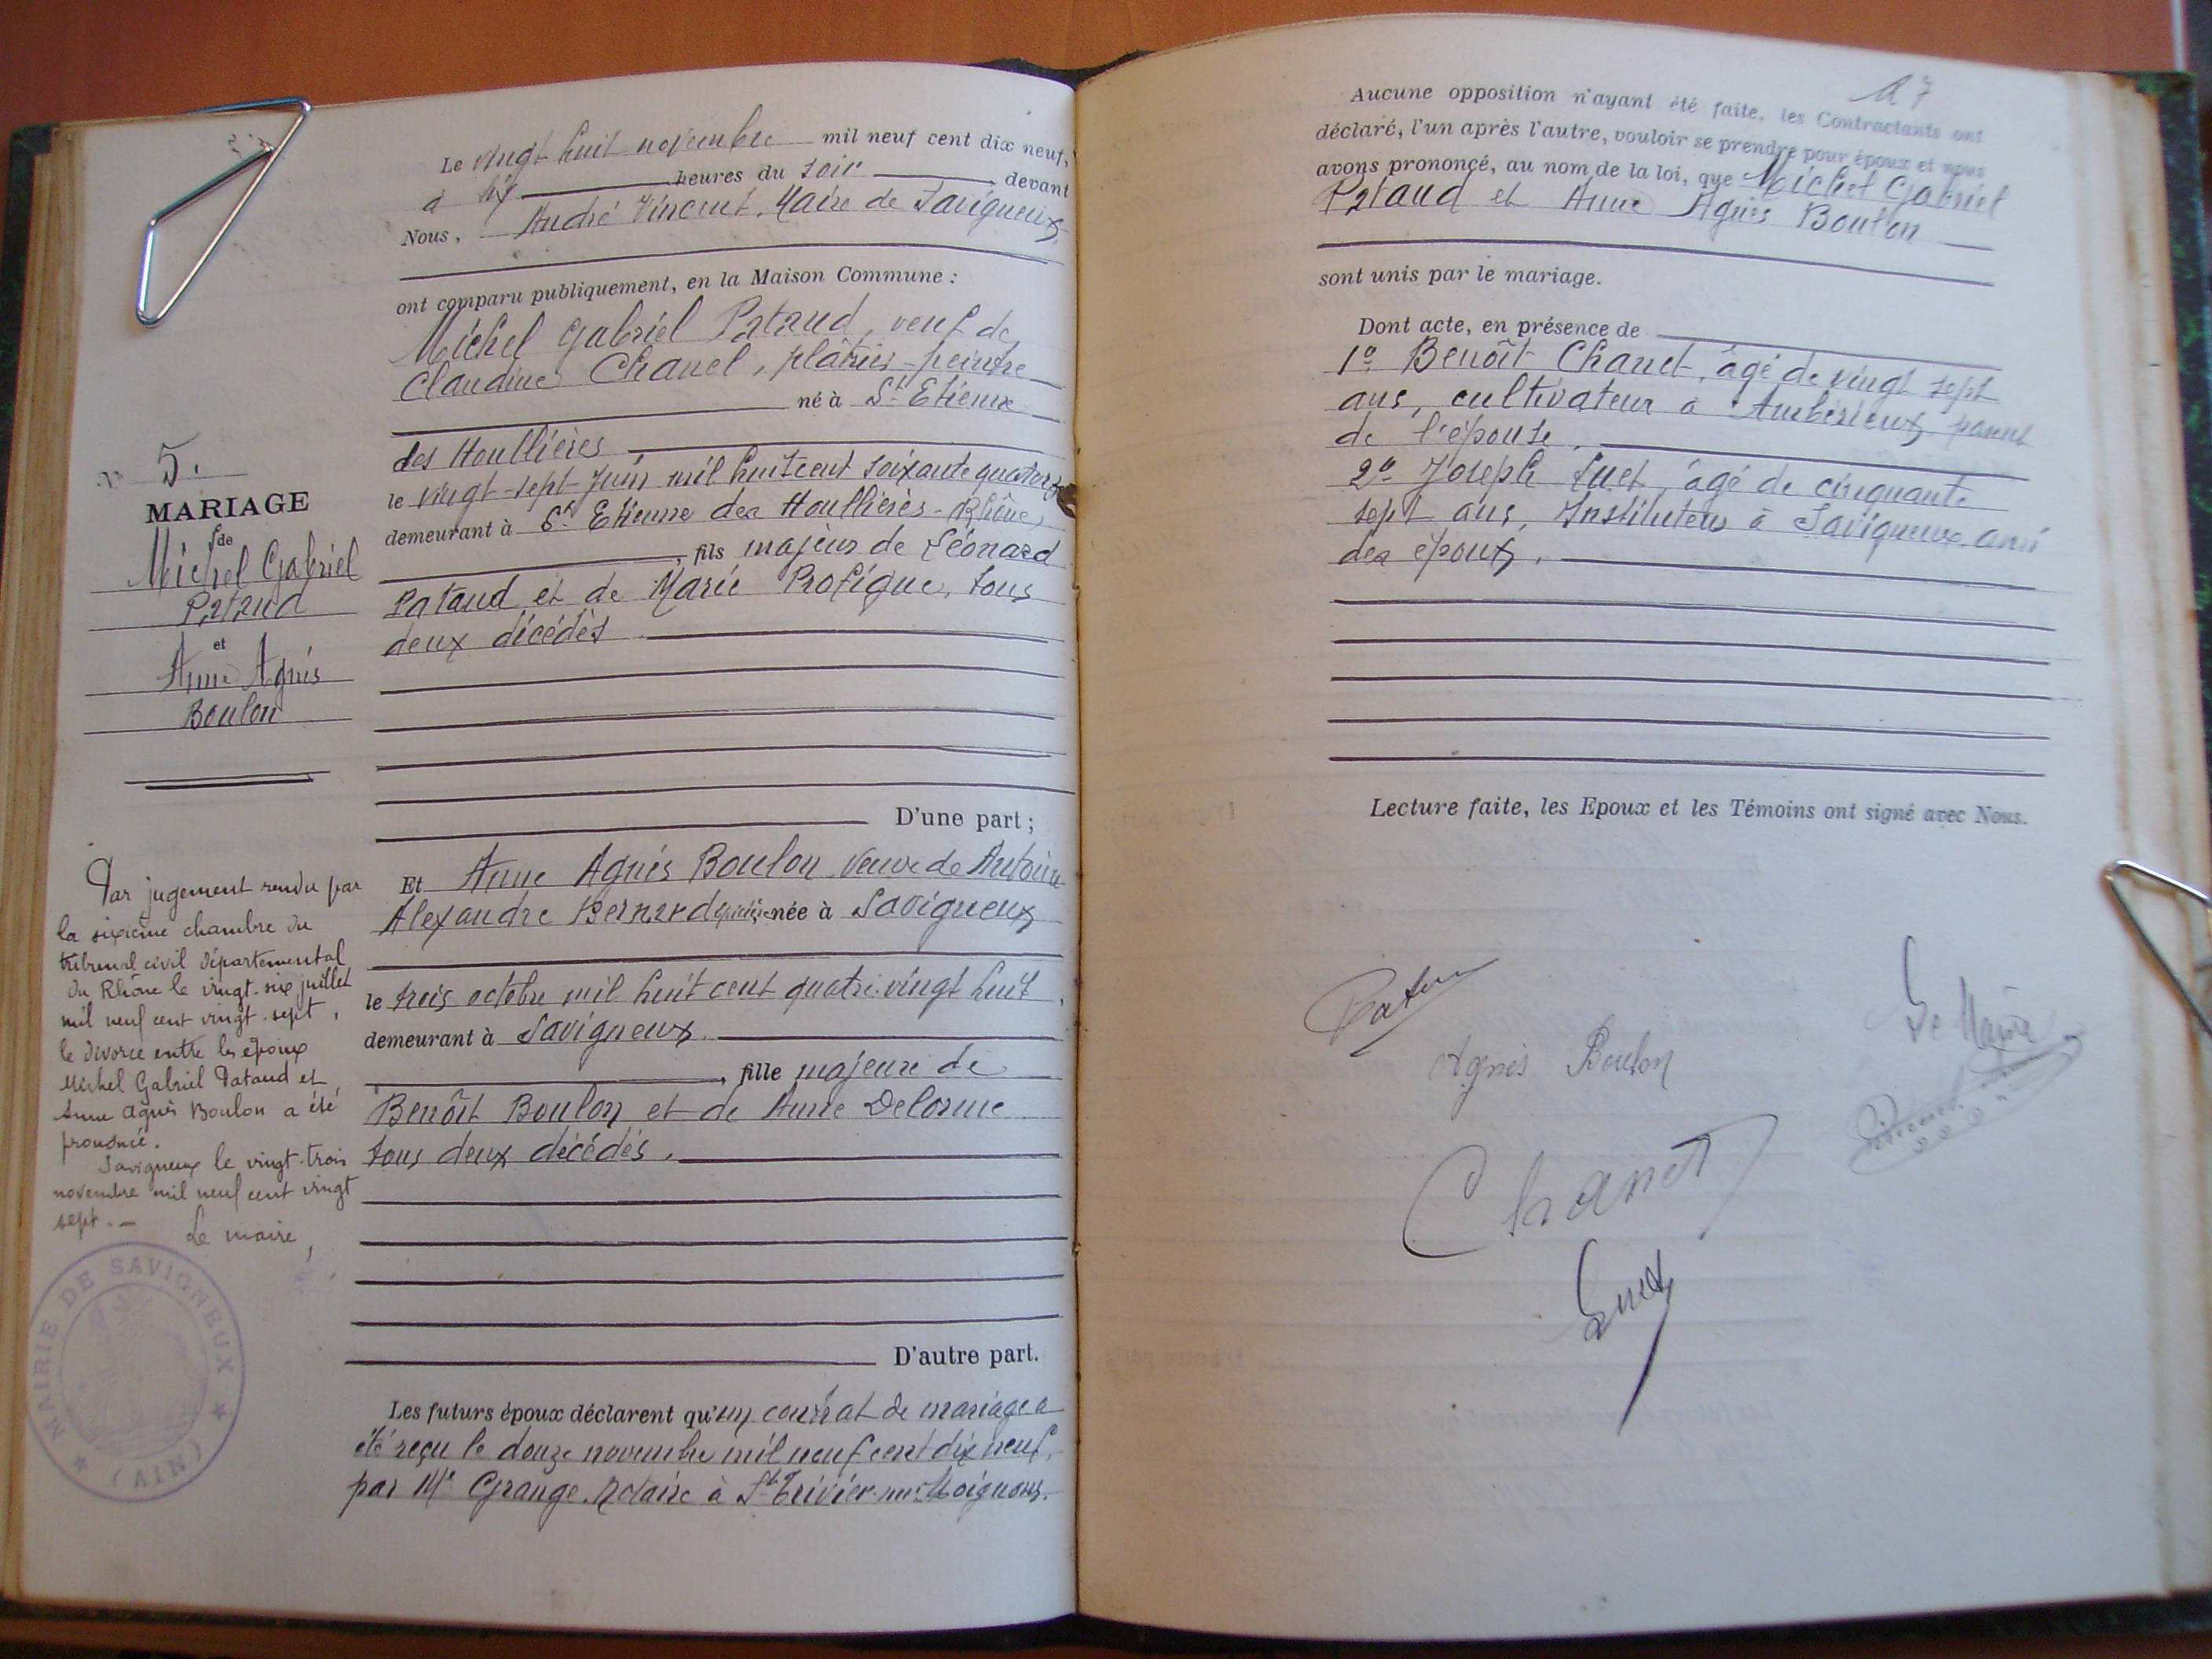 N° 5.
MARIAGE
de
Michel Gabriel
Pataud
et
Anne Agnès
Boulon
Par jugement rendu par
la sixième chambre du
tribunal civil départemental
du Rhône le vingt-six juillet
mil neuf cent vingt-sept,
le divorce entre les époux
Michel Gabriel Pataud et
Anne Agnès Boulon a été
prononcé.
Savigneux le vingt-trois
novembre mil neuf cent vingt
sept.-
Le maire,
MAIRIE DE SAVIGNEUX ★ (AIN) ★
Le vingt huit novembre mil neuf cent dix neuf,
à six heures du soir devant
Nous, André Vincent, Maire de Savigneux
ont comparu publiquement, en la Maison Commune :
Michel Gabriel Pataud, veuf de
Claudine Chanel, plâtrier-peintre
né à St Etienne
des Houllières
le vingt-sept Juin mil huit cent soixante quatorze
demeurant à St Etienne des Houllières-(Rhône)
, fils majeur de Léonard
Pataud et de Marie Profique, tous
deux décédés
D'une part ;
Et Anne Agnès Boulon, veuve de Antoine
Alexandre Bernard née à Savigneux
le trois octobre mil huit cent quatre-vingt huit,
demeurant à Savigneux
, fille majeure de
Benoît Boulon et de Anne Delorme
tous deux décédés.
D'autre part.
Les futurs époux déclarent qu'un contrat de mariage a
été reçu le douze novembre mil neuf cent dix neuf,
par Me Grange, notaire à St Trivier-sur-Moignans.
Aucune opposition n'ayant été faite, les Contractants ont
déclaré, l'un après l'autre, vouloir se prendre pour époux et nous
avons prononcé, au nom de la loi, que Michel Gabriel
Pataud et Anne Agnès Boulon
sont unis par le mariage.
Dont acte, en présence de
1° Benoît Chanet, âgé de vingt sept
ans, cultivateur à Ambérieux, parent
de l'épouse.
2° Joseph Suet, âgé de cinquante
sept ans, Instituteur à Savigneux, ami
des époux.
Lecture faite, les Epoux et les Témoins ont signé avec Nous.
Le Maire
Agnès Boulon
Vincent
Chanet
Suet